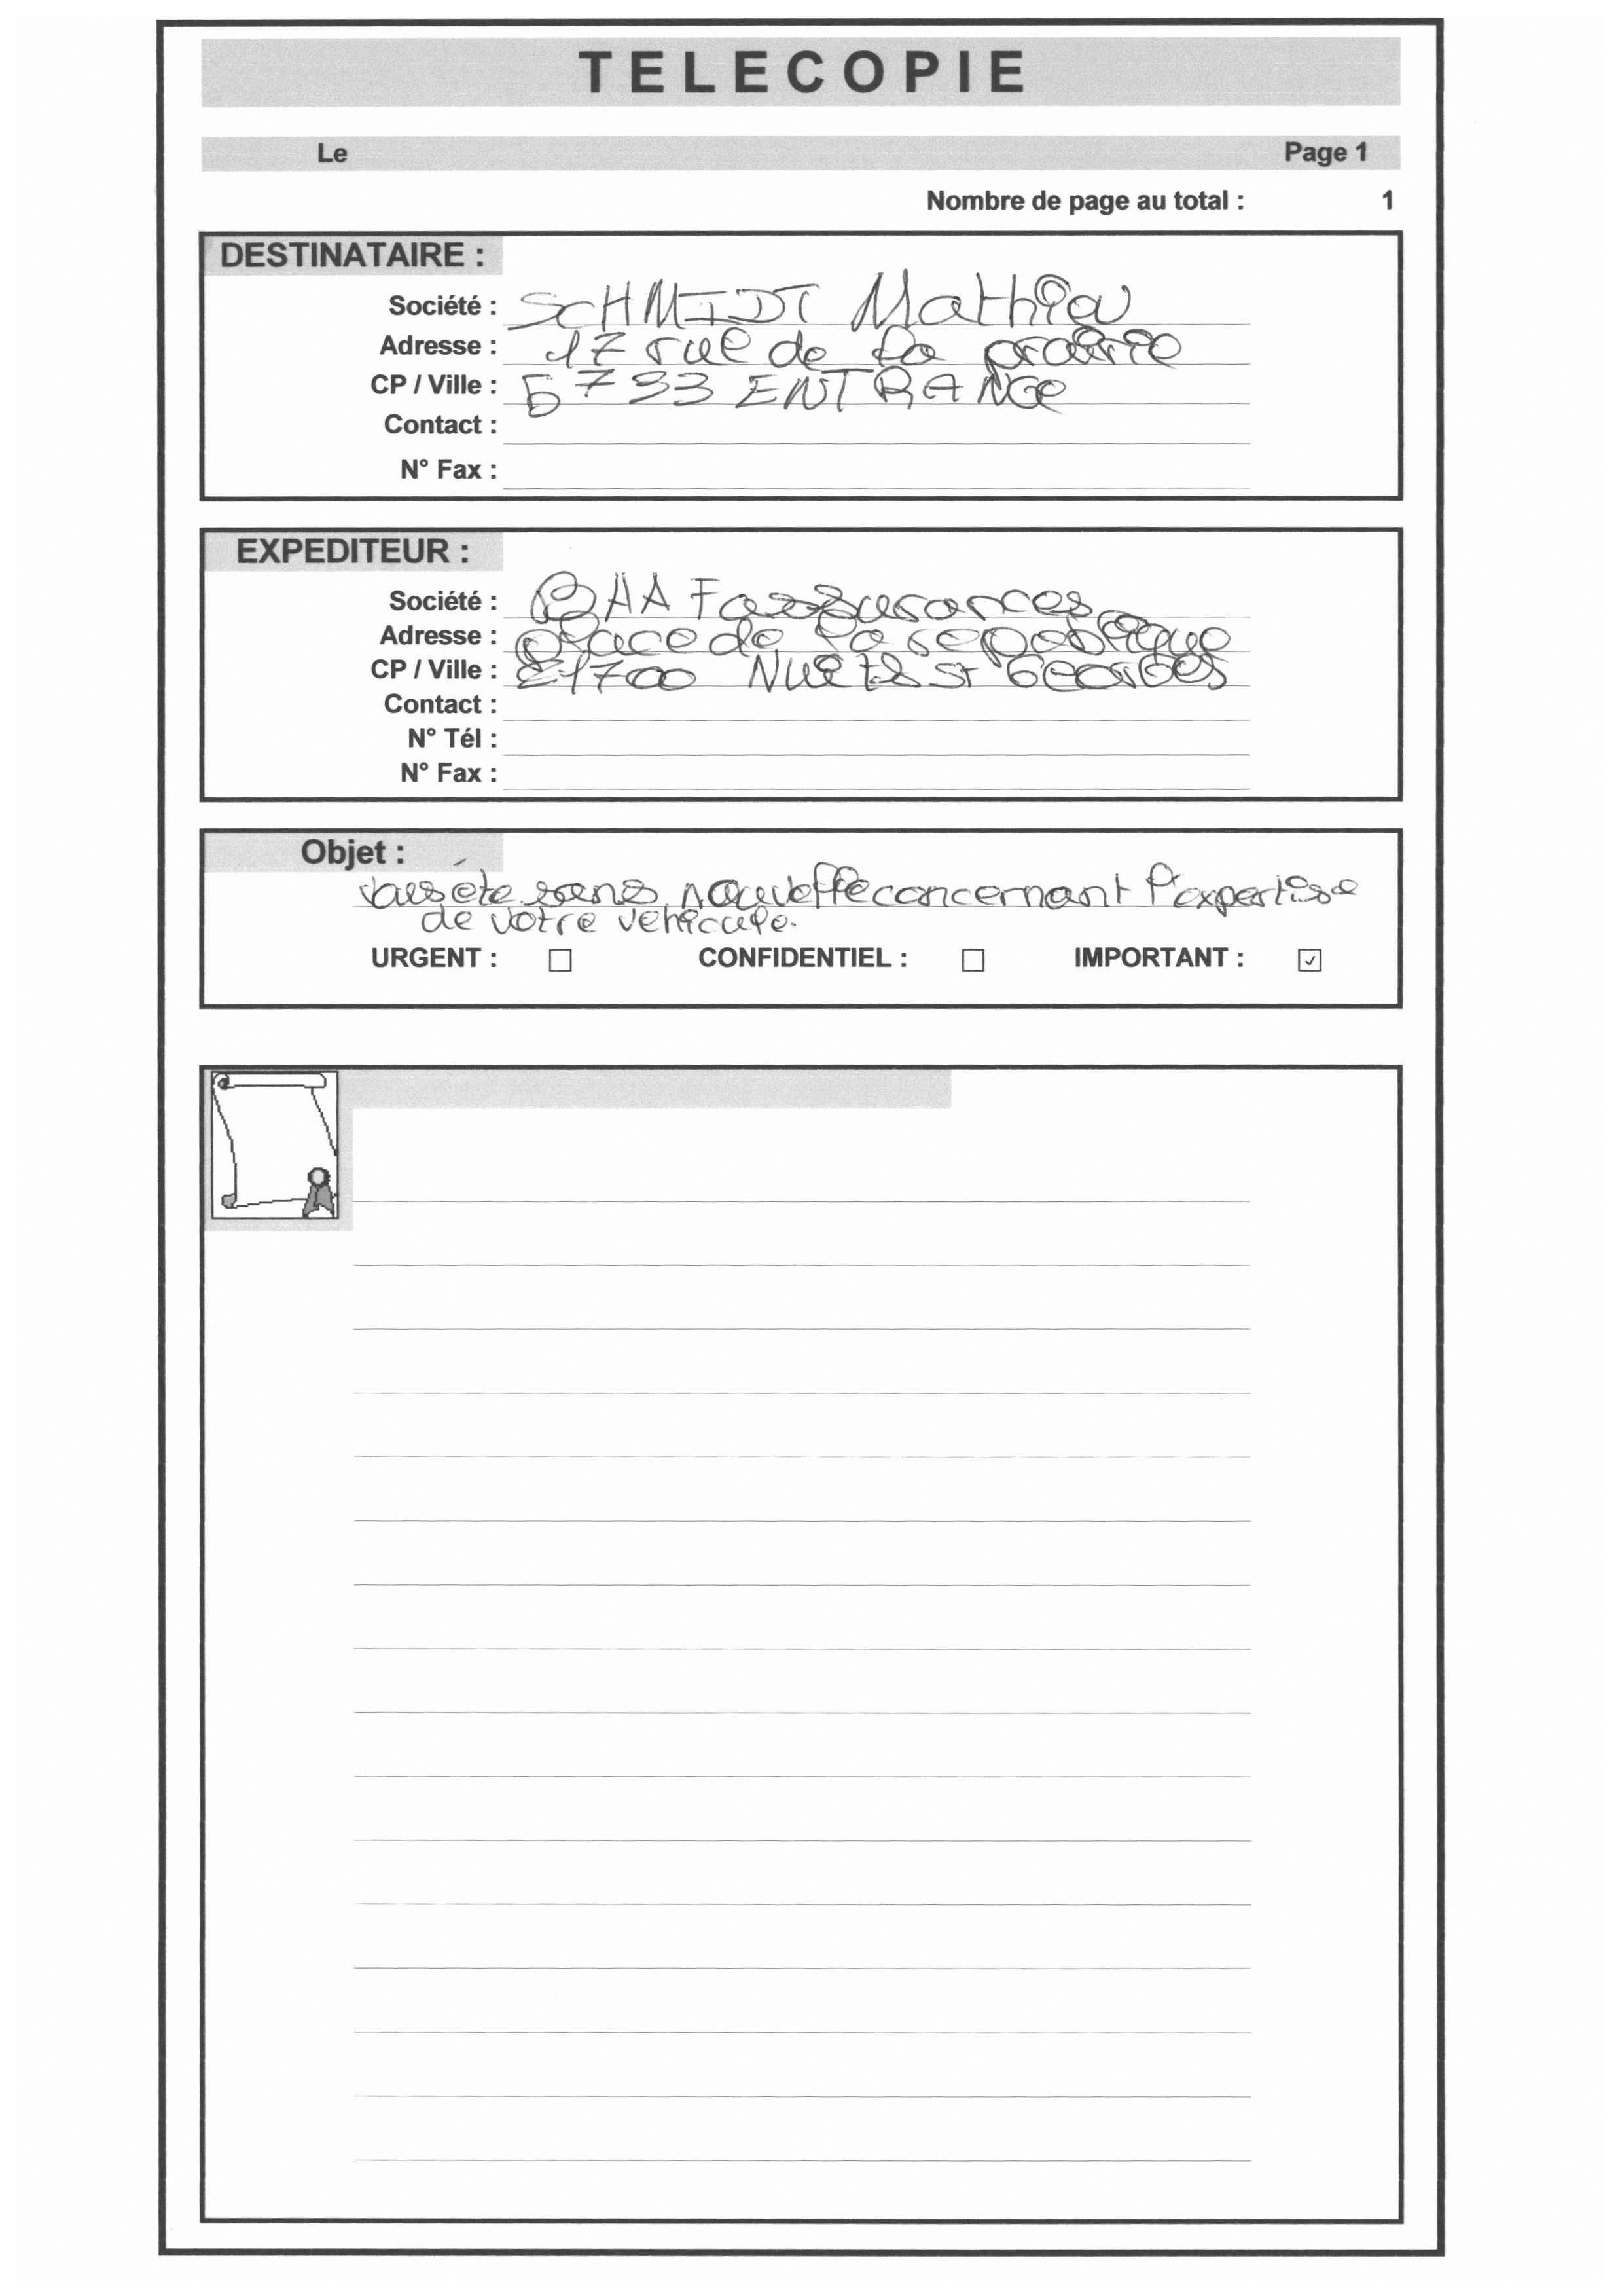 TELECOPIE
Le Page 1
Nombre de page au total : 1
DESTINATAIRE :
Société : SCHMIDT Mathieu
Adresse : 17 rue de la prairie
CP / Ville : 5733 ENTRANGE
Contact :
N° Fax :
EXPEDITEUR :
Société : assurances
Adresse : place de la republique
CP / Ville : 21700 Nuits St GEORGES
Contact :
N° Tél :
N° Fax :
Objet :
Vous ete sans nouvelle concernant l'expertise
de votre vehicule.
URGENT : ☐ CONFIDENTIEL : ☐ IMPORTANT : ☑